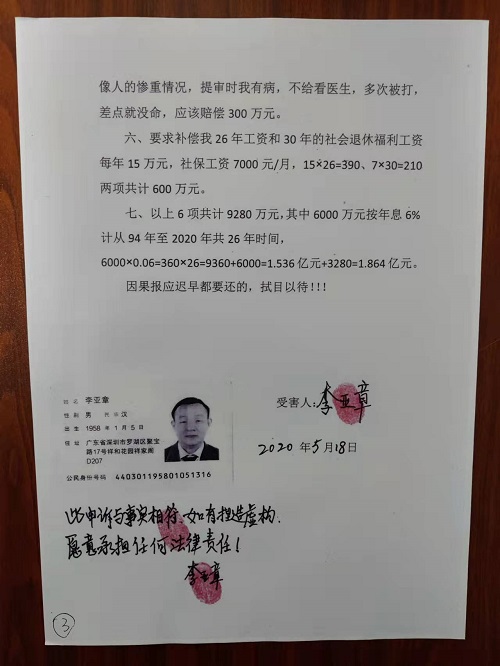 像人的惨重情况，提审时我有病，不给看医生，多次被打，
差点就没命，应该赔偿 300 万元。
六、要求补偿我 26 年工资和 30 年的社会退休福利工资
每年 15 万元，社保工资 7000 元/月，15×26=390、7×30=210
两项共计 600 万元。
七、以上 6 项共计 9280 万元，其中 6000 万元按年息 6%
计从 94 年至 2020 年共 26 年时间，
6000×0.06=360×26=9360+6000=1.536 亿元+3280=1.864 亿元。
因果报应迟早都要还的，拭目以待!!!
姓名 李亚章
性别 男 民族 汉
出生 1958 年 1 月 5 日
住址 广东省深圳市罗湖区聚宝
路17号祥和花园祥家阁
D207
公民身份号码 440301195801051316
受害人：李亚章
2020 年 5 月 18日
此申诉与事实相符，如有捏造虚构，
愿意承担任何法律责任！
李亚章
3